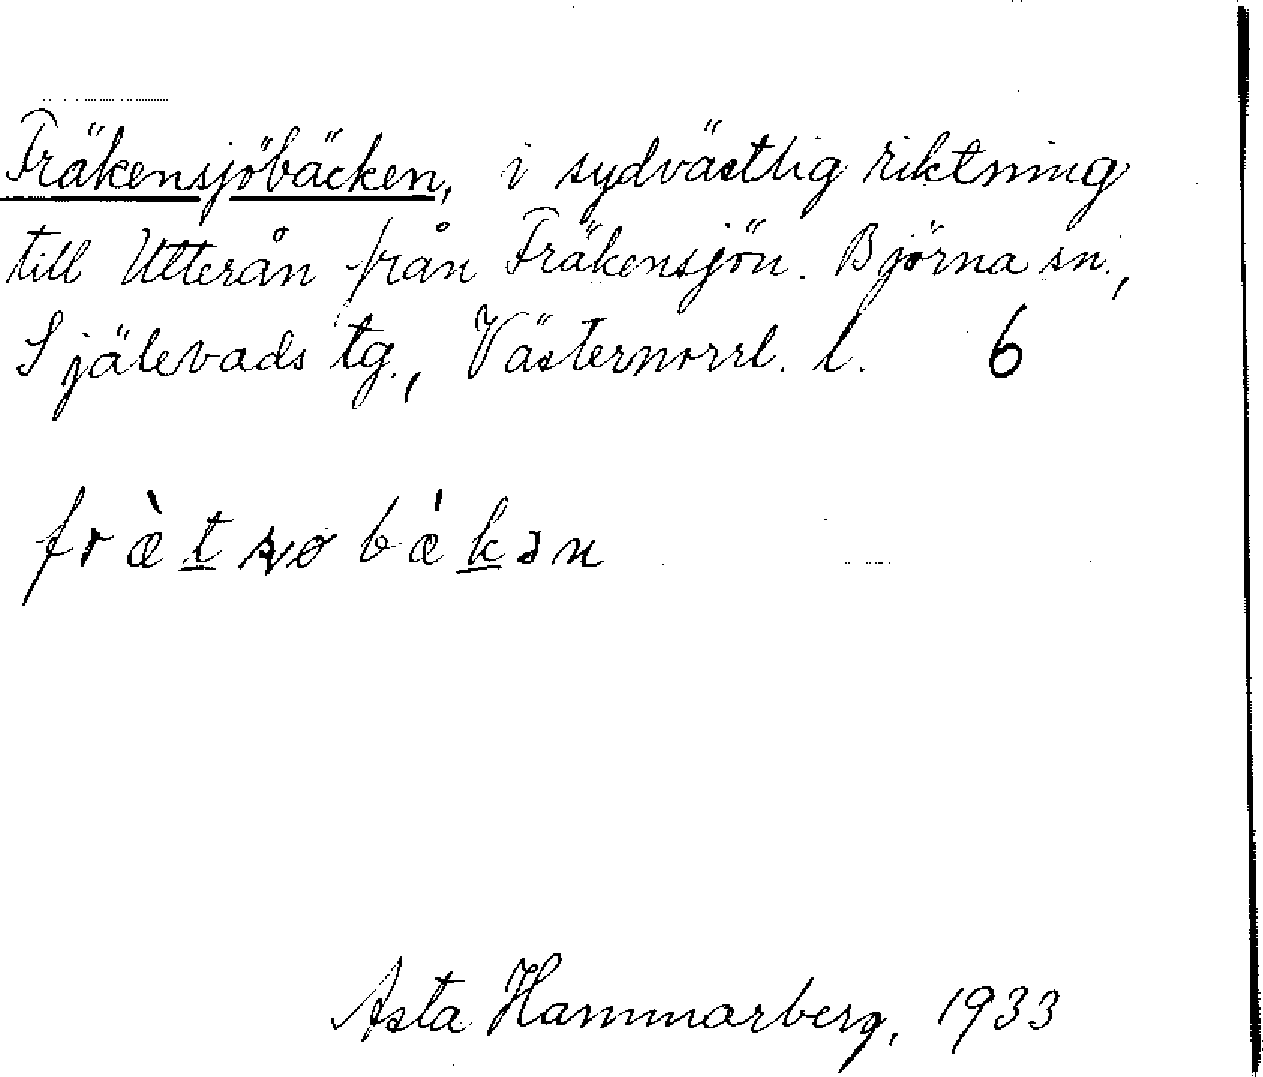 Fräkensjöbäcken, i sydvästlig riktning
till Utterån från Fräkensjön. Björna sn.,
Själevads tg., Västernorrl. l. 6
Asta Hammarberg, 1933